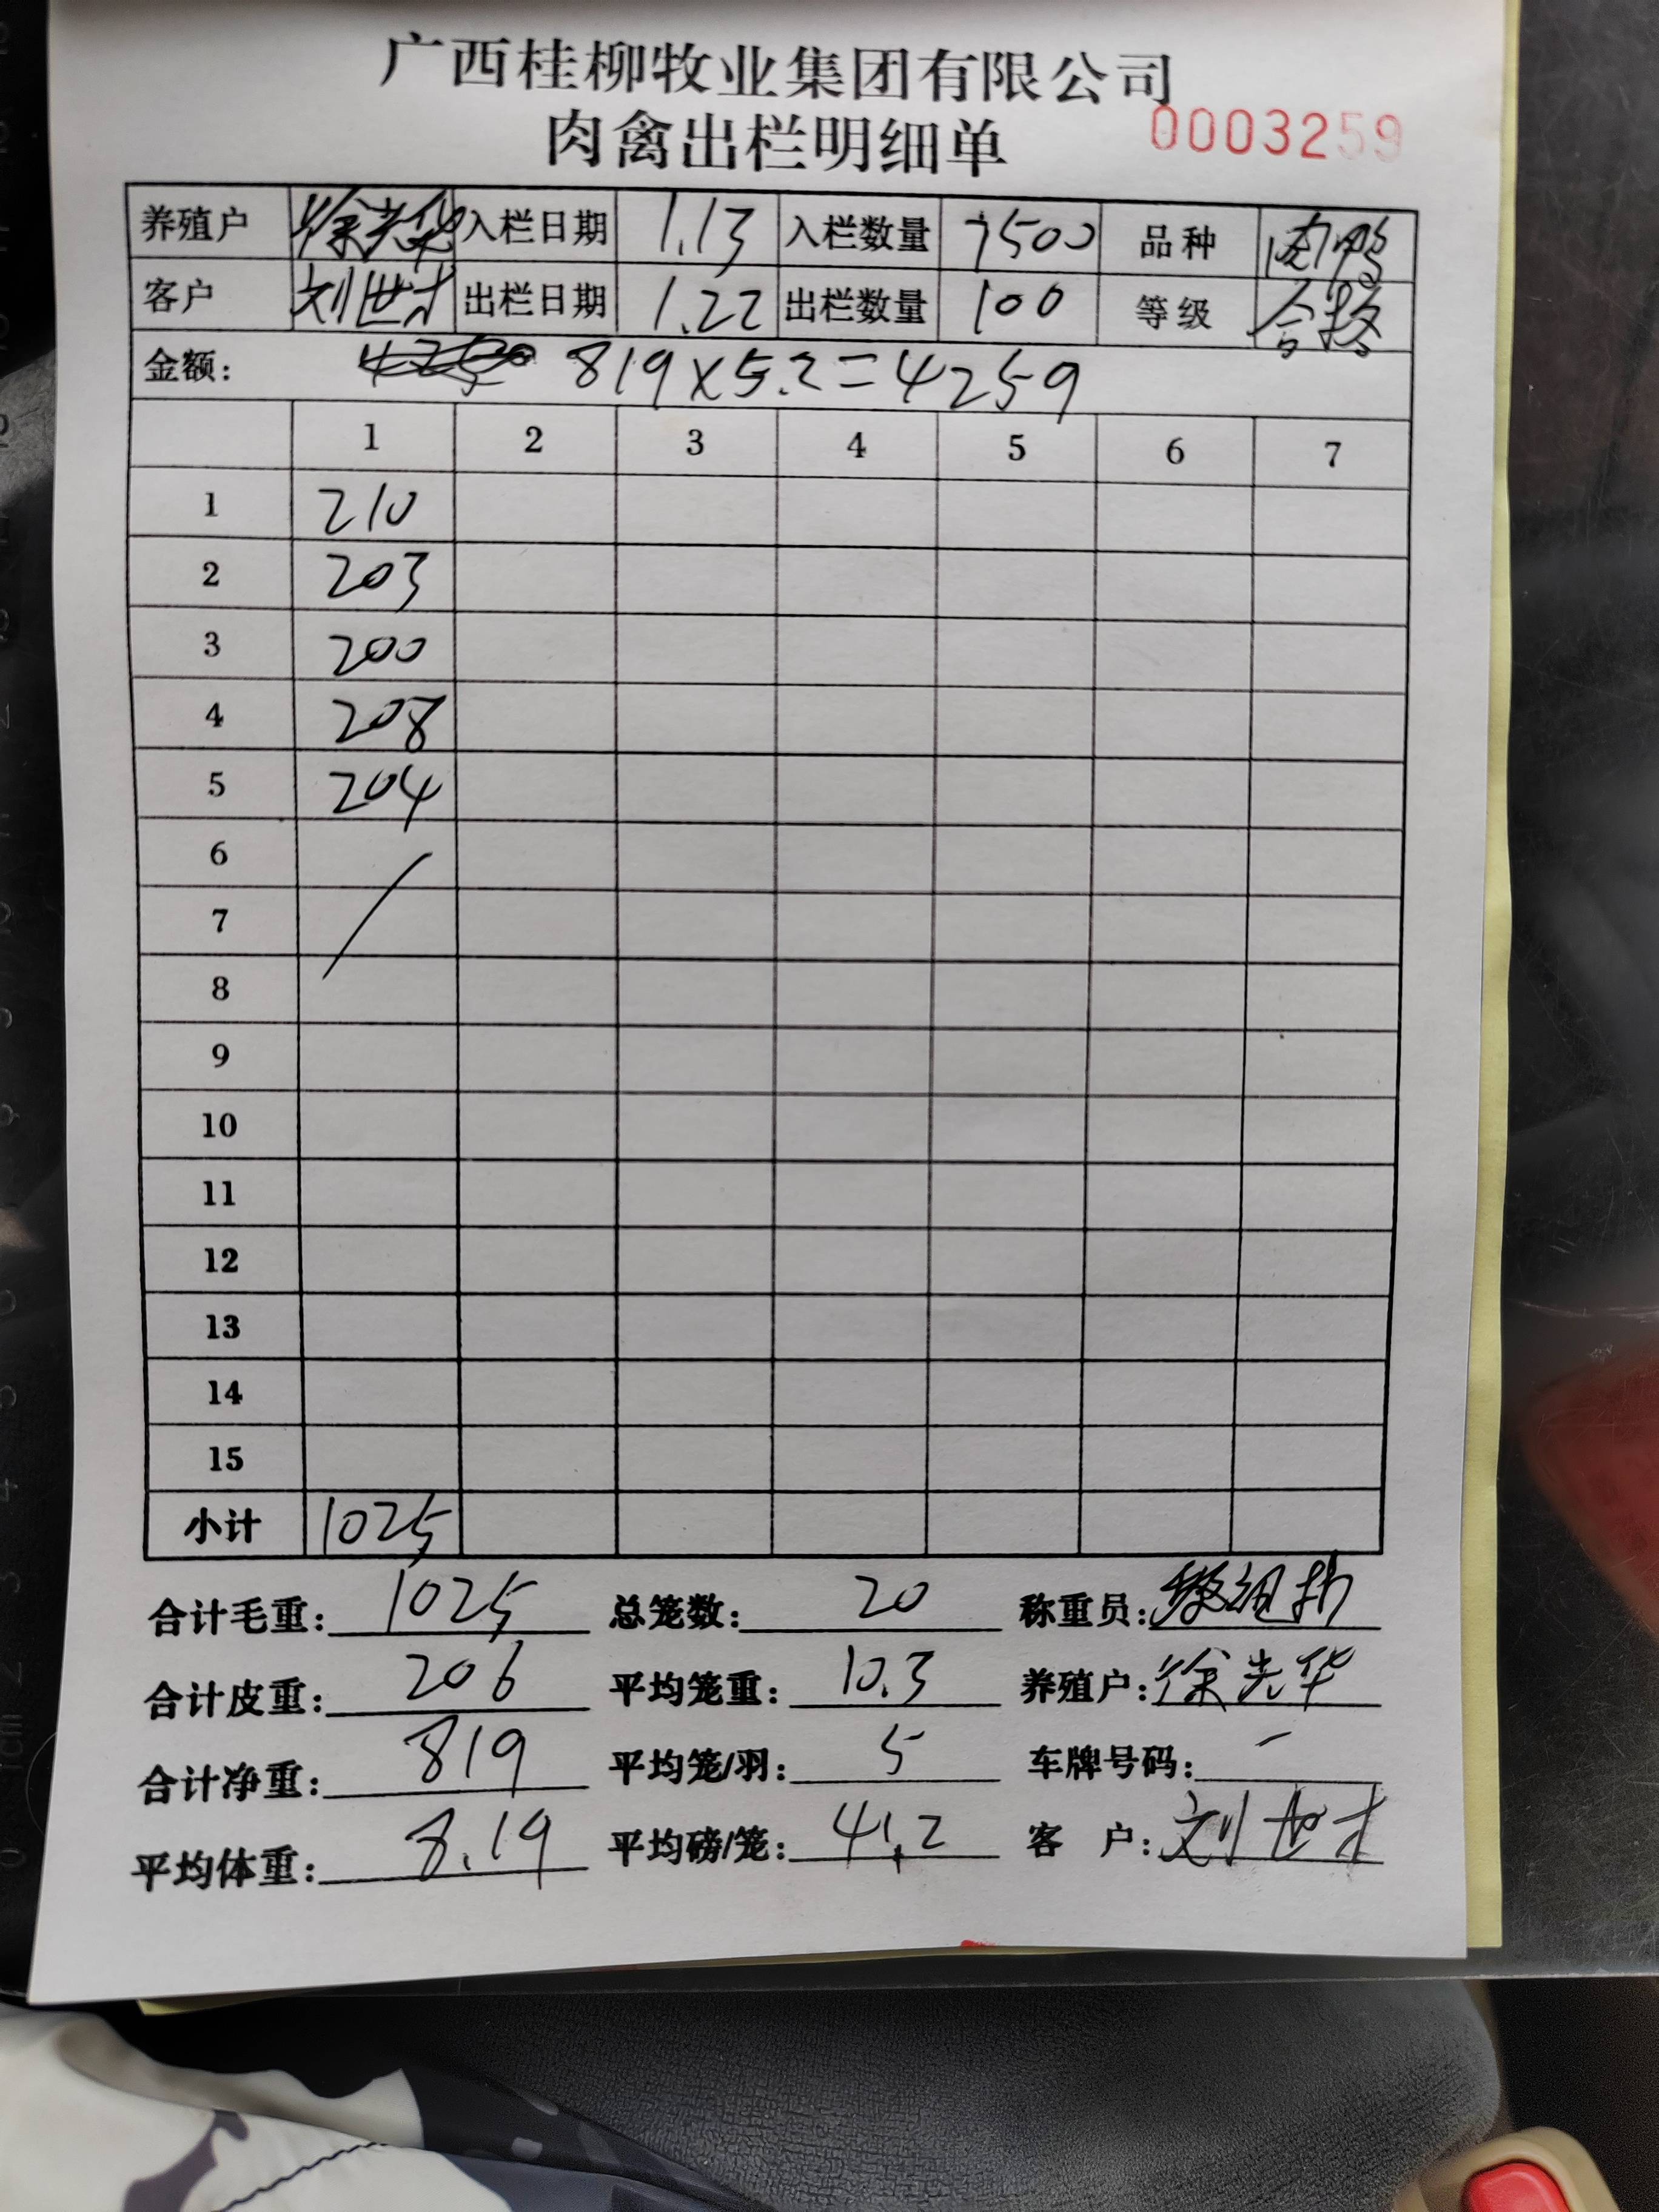 广西桂柳牧业集团有限公司
肉禽出栏明细单
0003259
养殖户 徐光华 入栏日期 1.13 入栏数量 7500 品种 肉鸭
客户 刘世才 出栏日期 1.22 出栏数量 100 等级 合格
金额： 819×5.2=4259
1 2 3 4 5 6 7
1 210
2 203
3 200
4 208
5 204
6
7
8
9
10
11
12
13
14
15
小计 1025
合计毛重：1025 总笼数：20 称重员：
合计皮重：206 平均笼重：10.3 养殖户：徐光华
合计净重：819 平均笼/羽：5 车牌号码：-
平均体重：8.19 平均磅/笼：41.2 客 户：刘世才